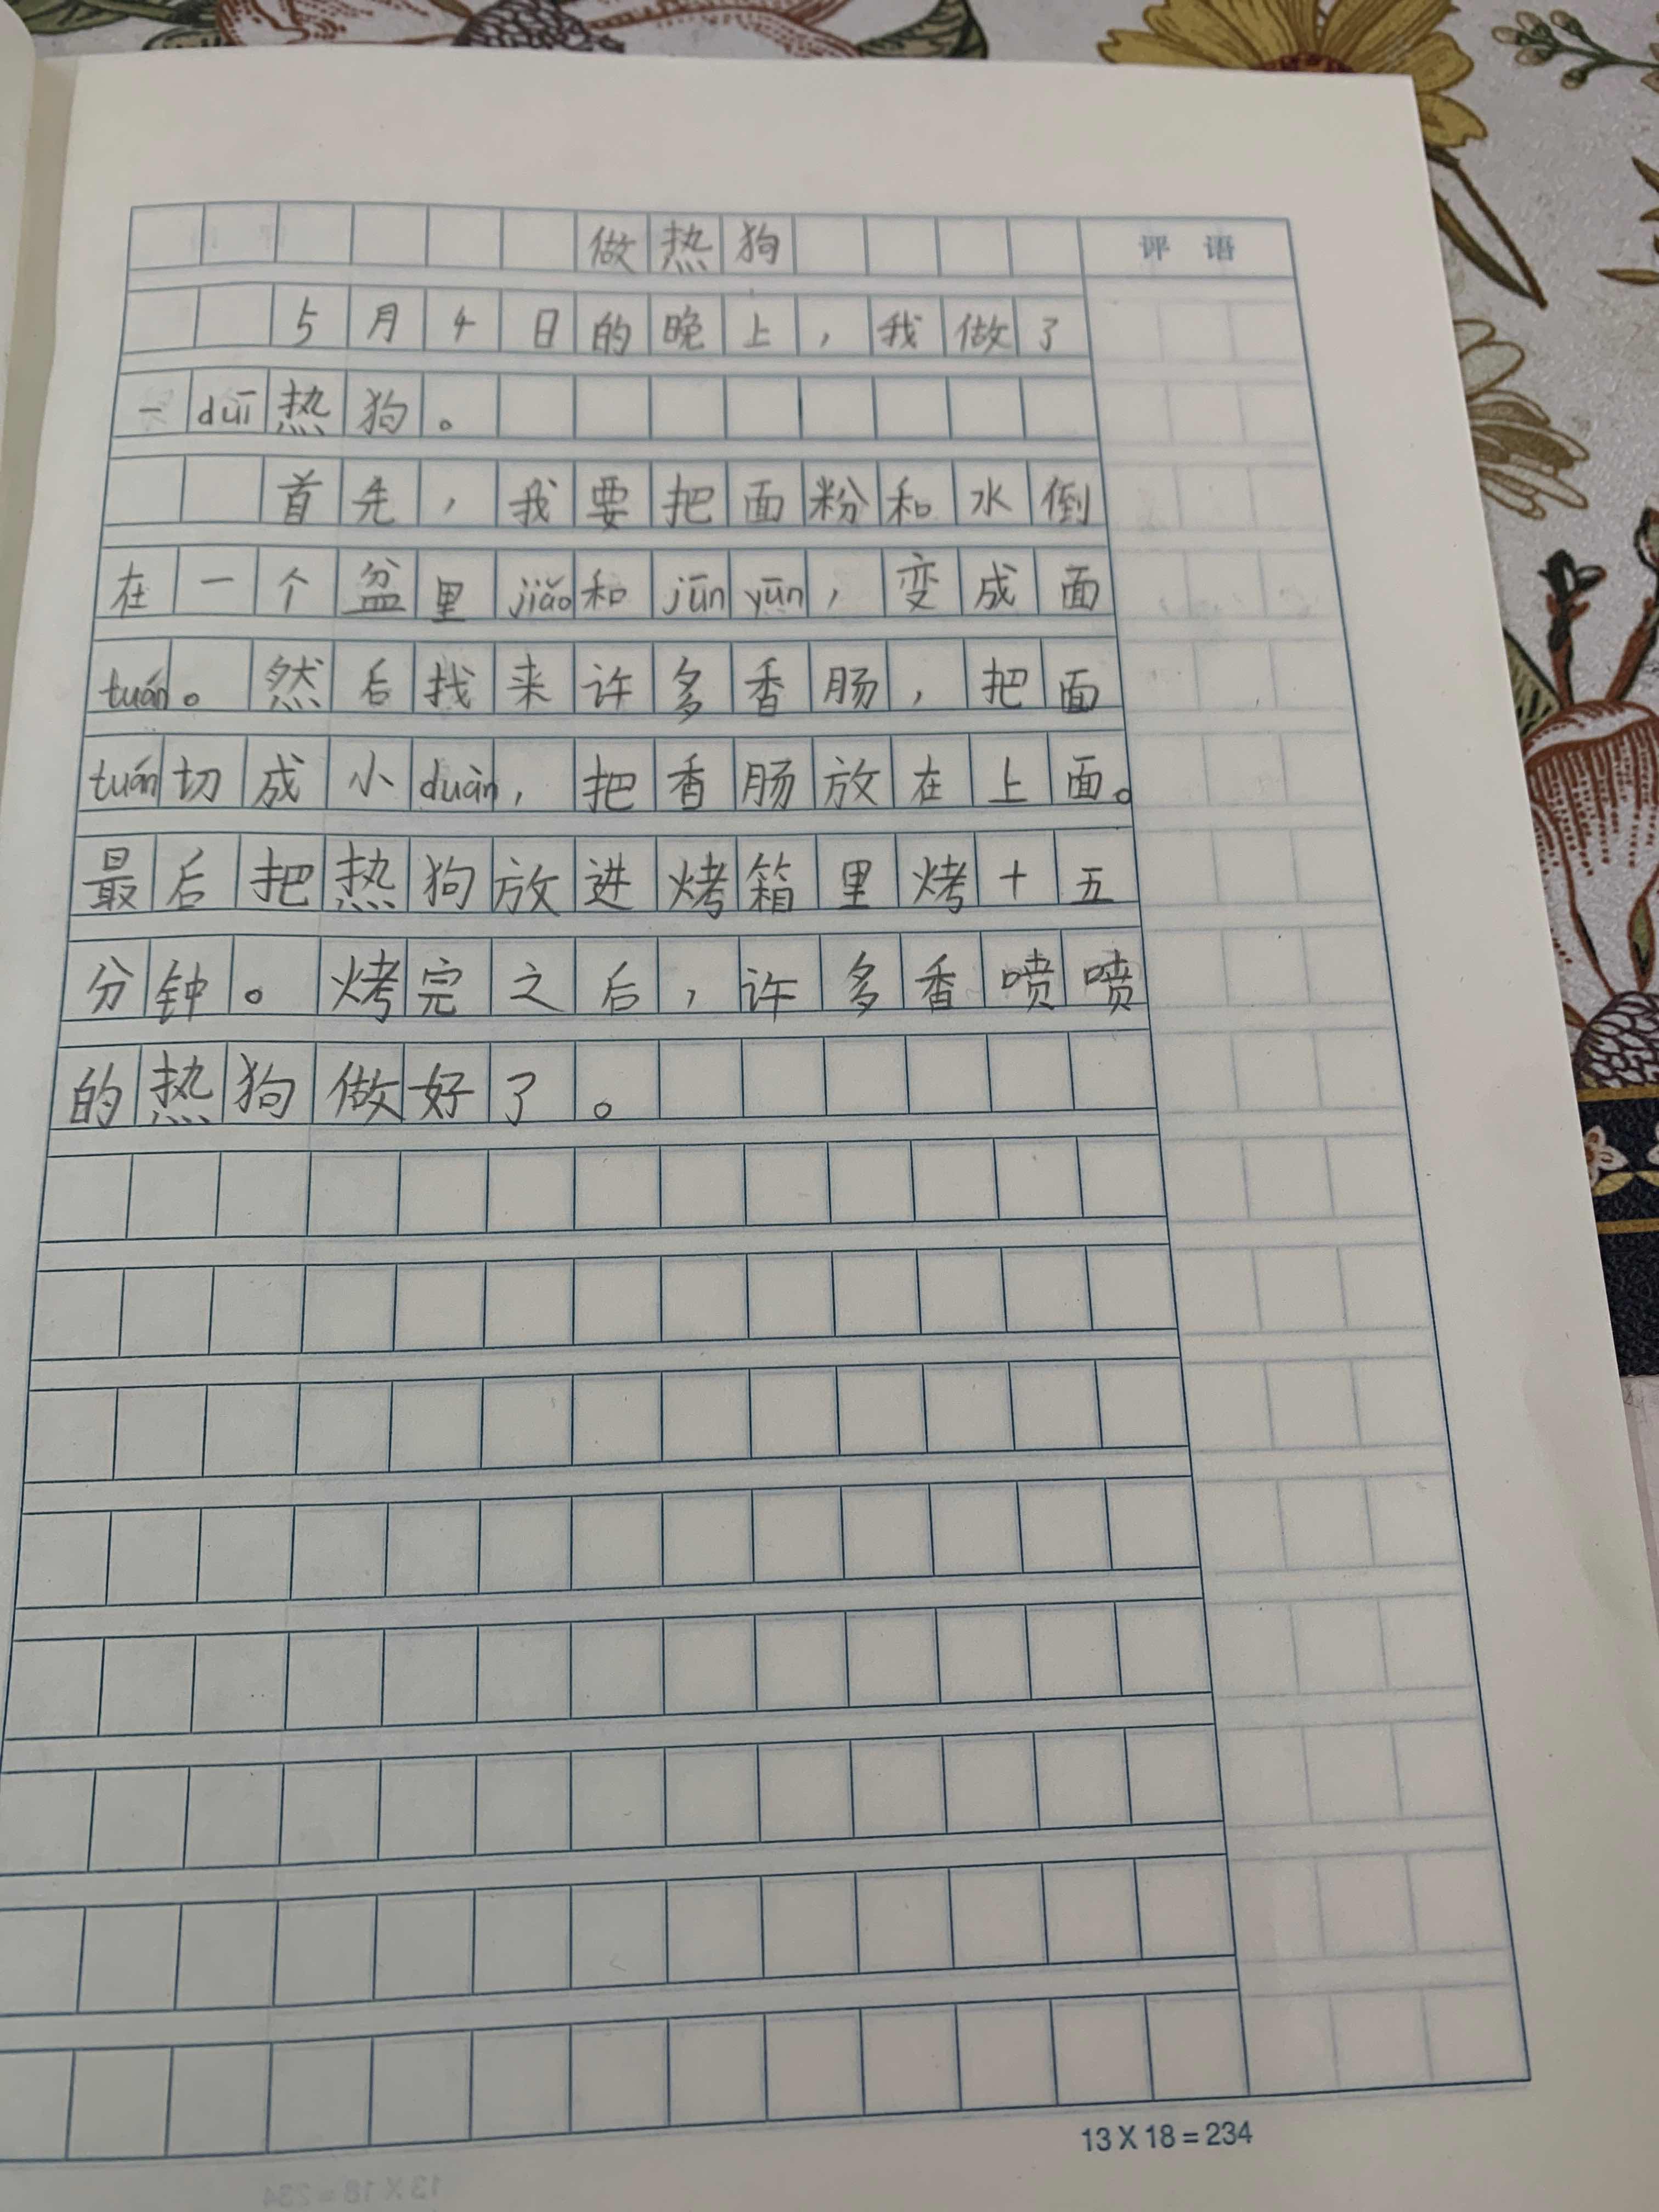 做热狗
评 语
5月4日的晚上，我做了
一duī热狗。
首先，我要把面粉和水倒
在一个盆里jiǎo和jūn yūn，变成面
tuán。然后找来许多香肠，把面
tuán切成小duàn，把香肠放在上面。
最后把热狗放进烤箱里烤十五
分钟。烤完之后，许多香喷喷
的热狗做好了。
13 X 18 = 234